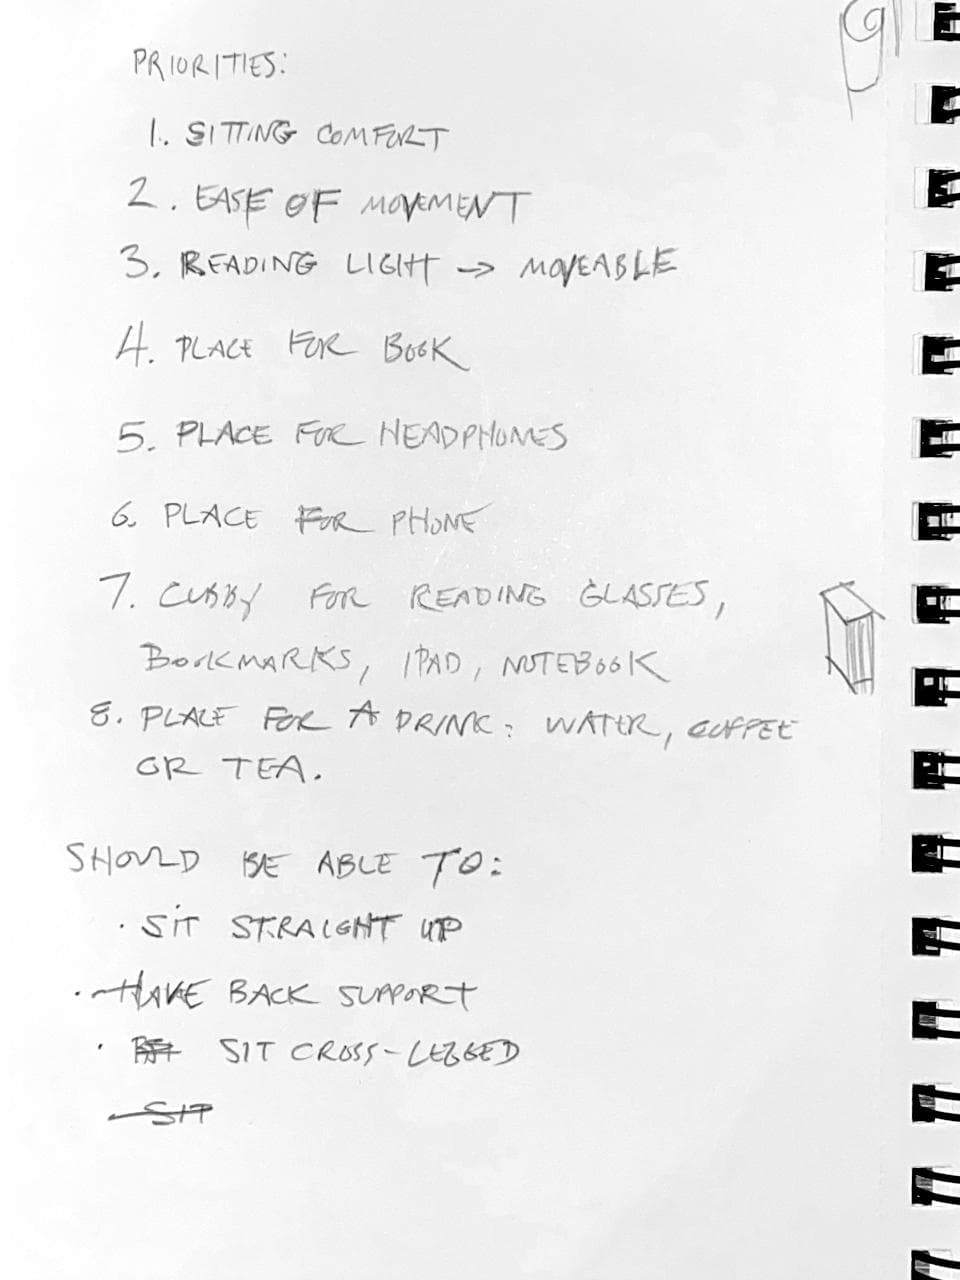 PRIORITIES:
1. SITTING COMFORT
2. EASE OF MOVEMENT
3. READING LIGHT → MOVEABLE
4. PLACE FOR BOOK
5. PLACE FOR HEADPHONES
6. PLACE FOR PHONE
7. CUBBY FOR READING GLASSES,
BOOKMARKS, IPAD, NOTEBOOK
8. PLACE FOR A DRINK: WATER, COFFEE
OR TEA.
SHOULD BE ABLE TO:
· SIT STRAIGHT UP
· HAVE BACK SUPPORT
· SIT CROSS-LEGGED
SIT